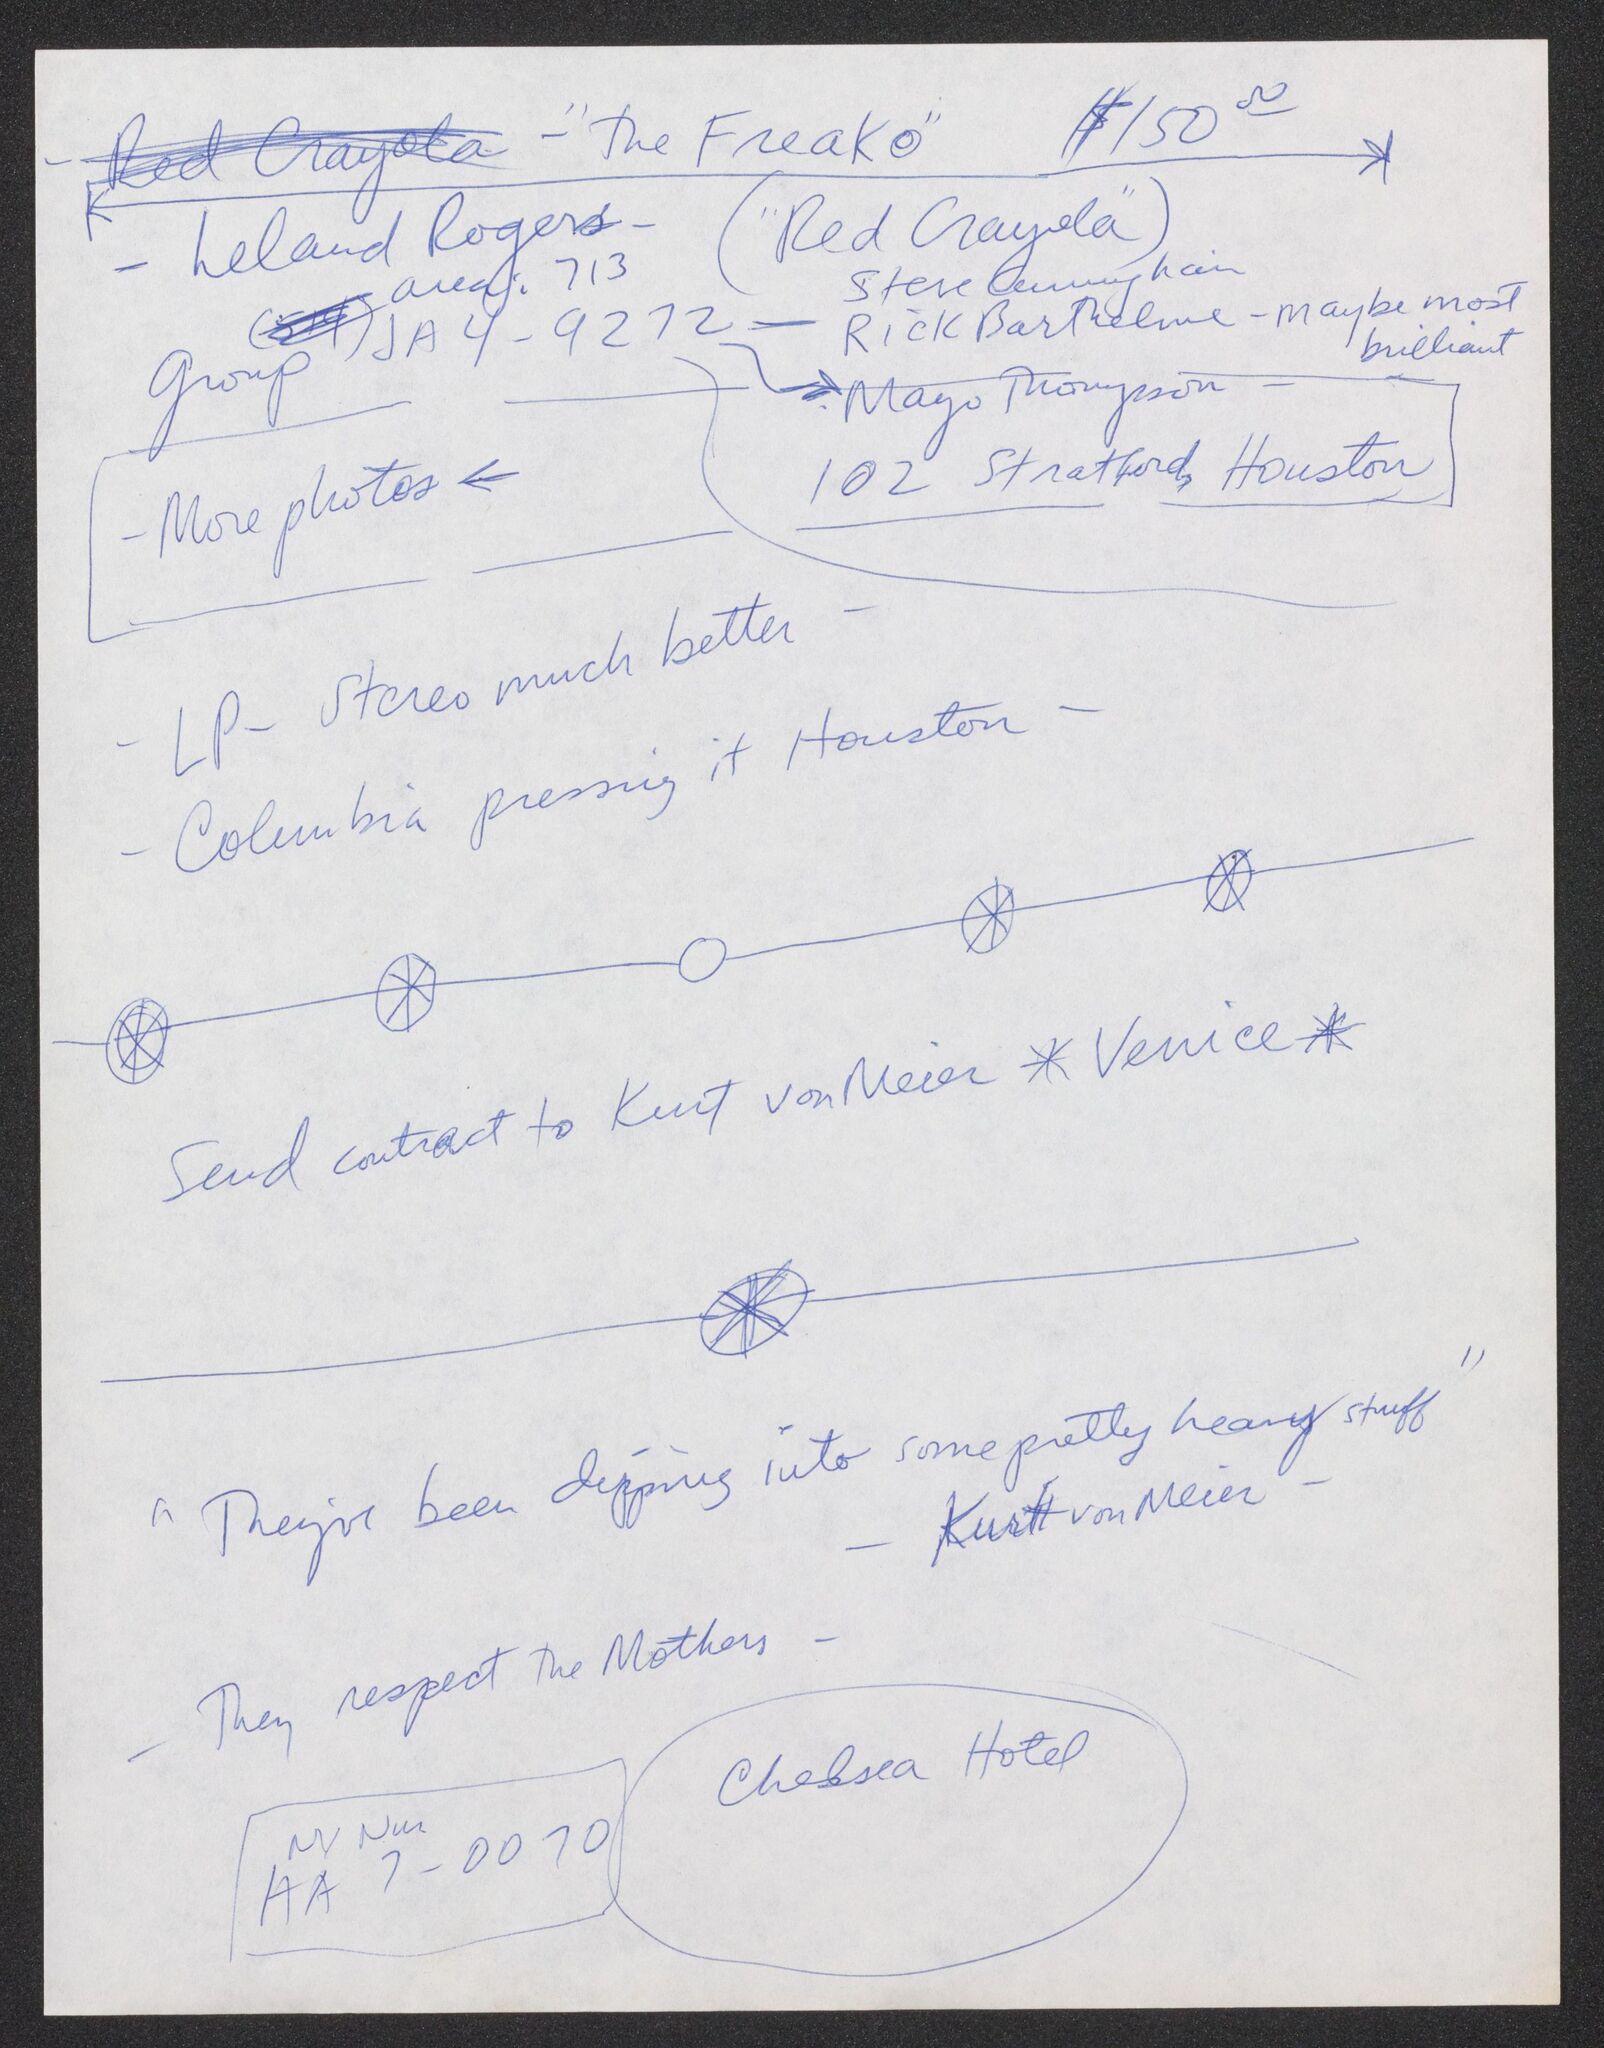 - Red Crayola - "The Freako" $150 00
- Leland Rogers - ("Red Crayola")
area: 713
Steve Cunningham
JA 4-9272 — Rick Barthelme - maybe most
brilliant
Group
Mayo Thompson -
- More photos ←
102 Stratford, Houston
- LP - Stereo much better -
- Columbia pressing it Houston -
Send contract to Kurt von Meier * Venice *
"They've been dipping into some pretty heavy stuff"
- Kurt von Meier -
- They respect the Mothers -
Chelsea Hotel
NY Num
HA 7-0070